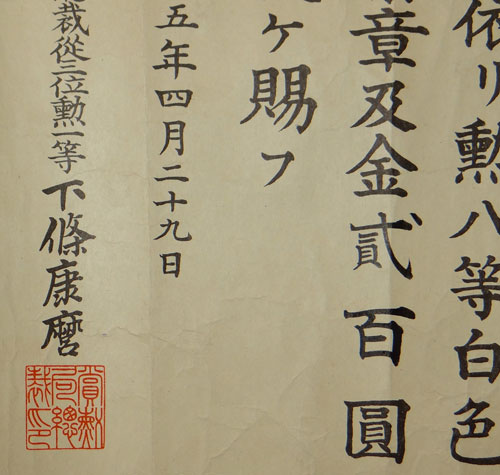 依リ勲八等白色
章及金貳百圓
ケ賜フ
五年四月二十九日
裁從三位勳一等下條康麿
賞勲局總裁印